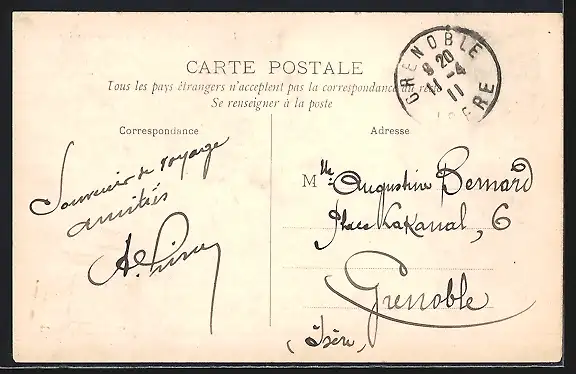 CARTE POSTALE
Tous les pays étrangers n'acceptent pas la correspondance au recto
Se renseigner à la poste
GRENOBLE
8 20
11 -4
11
ISERE
Correspondance
Adresse
Souvenir de voyage
amitiés
Mlle Augustine Bernard
Place Lakanal, 6
Grenoble
(Isère)